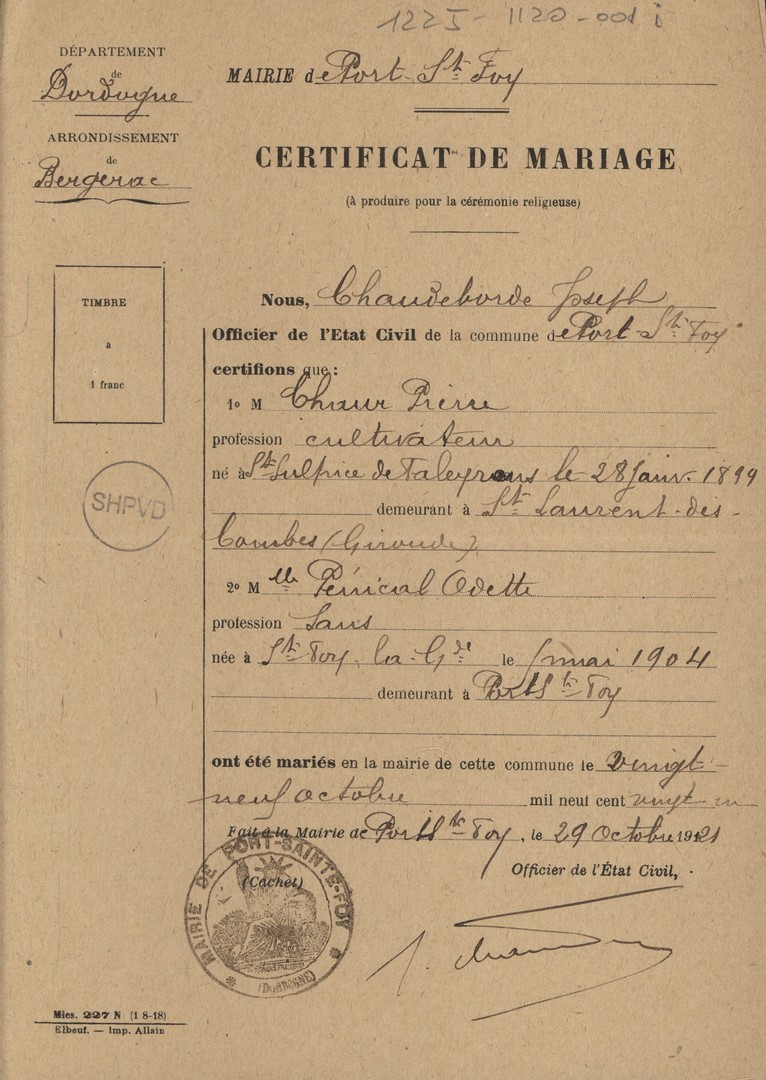 1225-1120-001 i
DÉPARTEMENT
de
Dordogne
ARRONDISSEMENT
de
Bergerac
MAIRIE de Port-Ste Foy
CERTIFICAT DE MARIAGE
(à produire pour la cérémonie religieuse)
TIMBRE
à
1 franc
SHPVD
Nous, Chaudeborde Joseph
Officier de l'Etat Civil de la commune de Port-Ste Foy
certifions que :
1o M Chaur Pierre
profession cultivateur
né à St Sulpice de Faleyrens le 28 Janv. 1899
demeurant à St Laurent-des-
Combes (Gironde)
2o M lle Pénicial Odette
profession Sans
née à Ste Foy-la-Gde le mai 1904
demeurant à Port Ste Foy
ont été mariés en la mairie de cette commune le vingt-
neuf octobre mil neuf cent vingt-un
Fait à la Mairie de Port Ste Foy, le 29 Octobre 1921
Officier de l'État Civil,
(Cachet)
MAIRIE DE PORT-SAINTE-FOY
(DORDOGNE)
Mies. 227 N (1 8-18)
Elbeuf. — Imp. Allain